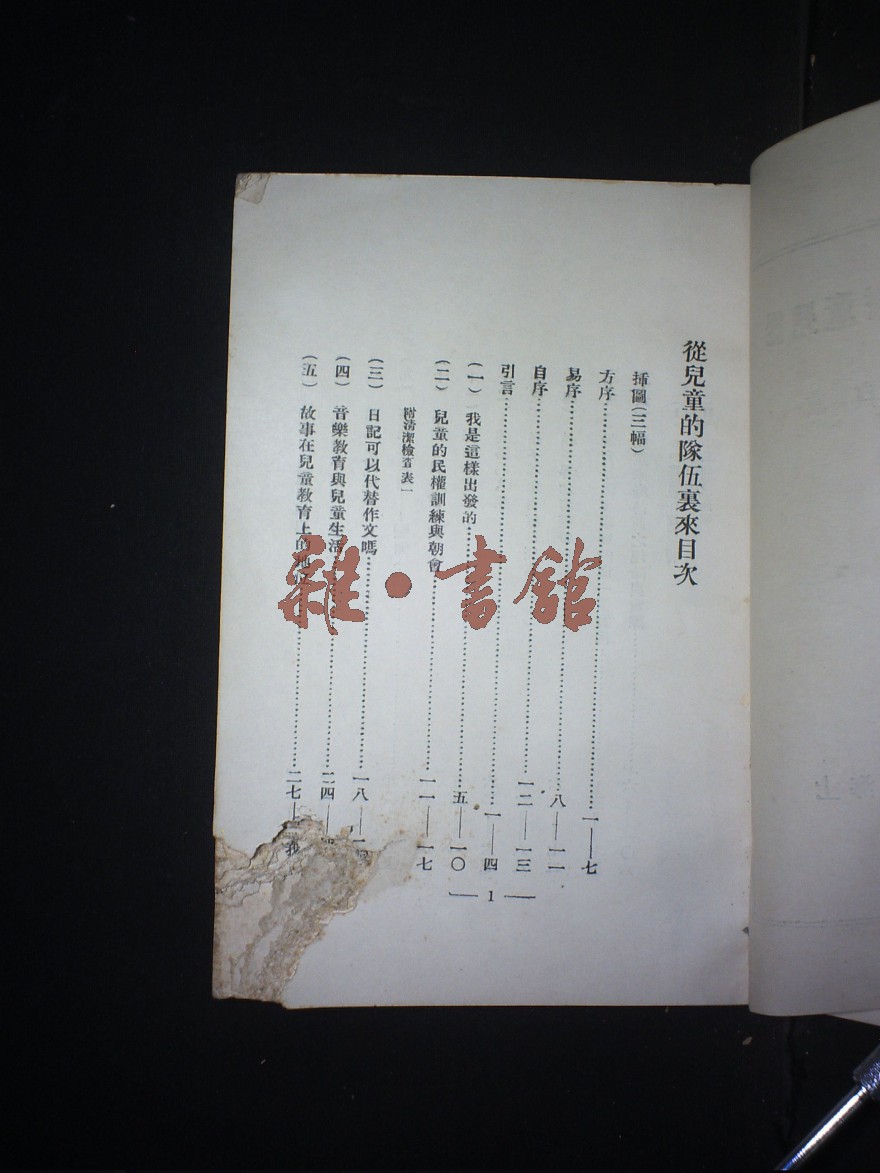 從兒童的隊伍裏來目次
揷圖(三幅)
方序……一——七
易序……八——一一
自序……一二——一三
引言……一——四
(一) 我是這樣出發的……五——一〇
(二) 兒童的民權訓練與朝會……一一——一七
附清潔檢查表一
(三) 日記可以代替作文嗎……一八——
(四) 音樂教育與兒童生活……二四——
(五) 故事在兒童教育上的……二七——
— 1 —
雜·書館